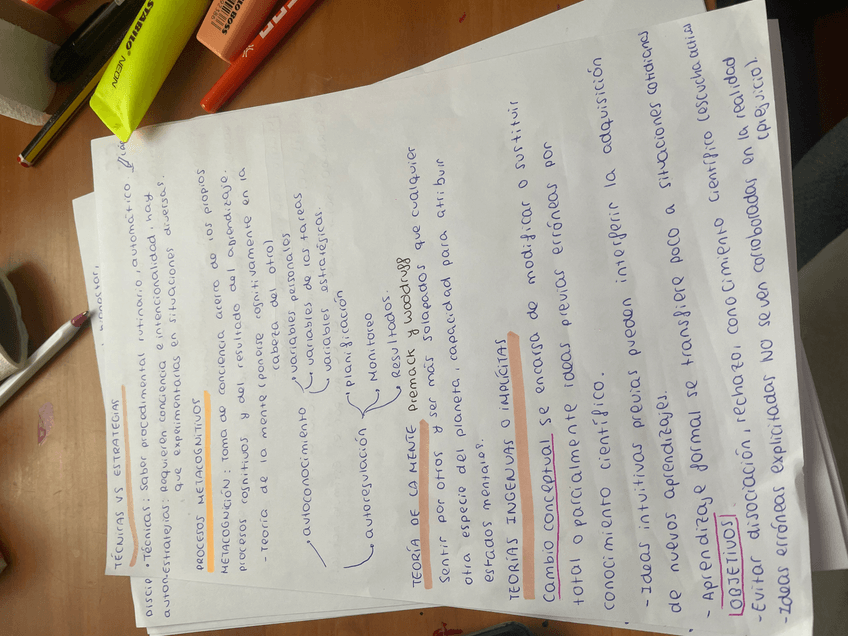 TÉCNICAS VS ESTRATEGIAS
• Técnicas: saber procedimental rutinario, automático
estrategias: Requieren conciencia e intencionalidad, hay
que experimentarlas en situaciones diversas.
PROCESOS METACOGNITIVOS
METACOGNICIÓN: toma de conciencia acerca de los propios
procesos cognitivos y del resultado del aprendizaje.
- Teoría de la mente (ponerse cognitivamente en la
cabeza del otro)
autoconocimiento
variables personales
variables de las tareas
variables estratégicas.
autoregulación
planificación
Monitoreo
Resultados.
TEORÍA DE LA MENTE Premack y Woodruff
Sentir por otros y ser más solapados que cualquier
otra especie del planeta, capacidad para atribuir
estados mentales.
TEORÍAS INGENUAS O IMPLÍCITAS
Cambio conceptual se encarga de modificar o sustituir
total o parcialmente ideas previas erróneas por
conocimiento científico.
- Ideas intuitivas previas pueden interferir la adquisición
de nuevos aprendizajes.
- Aprendizaje formal se transfiere poco a situaciones cotidianas
OBJETIVOS
- Evitar disociación, rechazo, conocimiento científico (escucha activa
- Ideas erróneas explicitadas NO se ven corroboradas en la realidad
(prejuicio).
STABILO NEON
BOSS